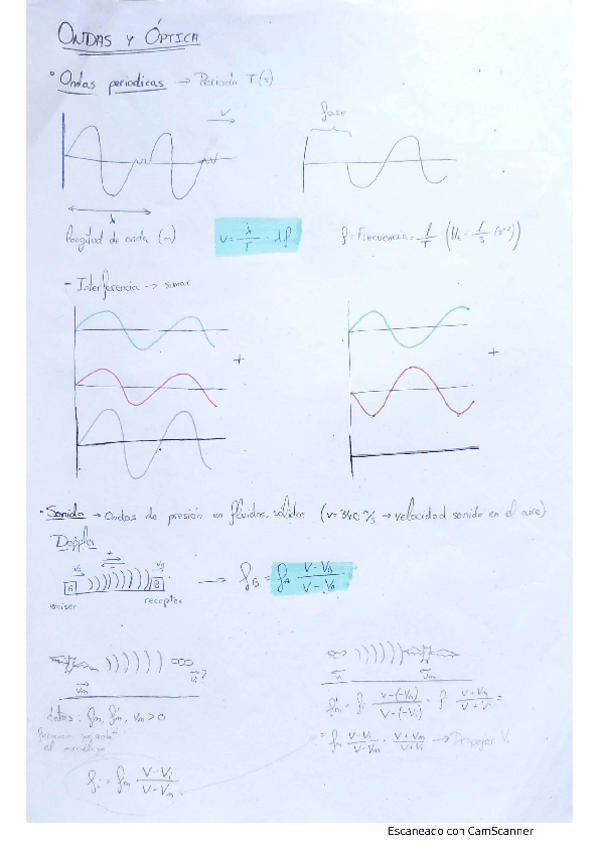 ONDAS Y ÓPTICA
Ondas periodicas → Periodo T (s)
V
fase
λ
longitud de onda (m)
V = λ/T = λf
f = Frecuencia = 1/T (Hz = 1/s (s⁻¹))
- Interferencia -> sumar
+
+
Sonido → Ondas de presión en fluidos, sólidos (v=340 m/s → velocidad sonido en el aire)
Doppler
+
A
B
emisor
receptor
→ f_B = f_A (V - V_B)/(V - V_A)
V_m
V_i?
V_i
V_m
datos: f_m, f'_m, V_m > 0
el murcielago
f_i = f_m (V - V_i)/(V - V_m)
f'_m = f_i (V - (-V_m))/(V - (-V_i)) = f_i (V + V_m)/(V + V_i) =
= f_m (V - V_i)/(V - V_m) · (V + V_m)/(V + V_i) → Despejar V_i
Escaneado con CamScanner